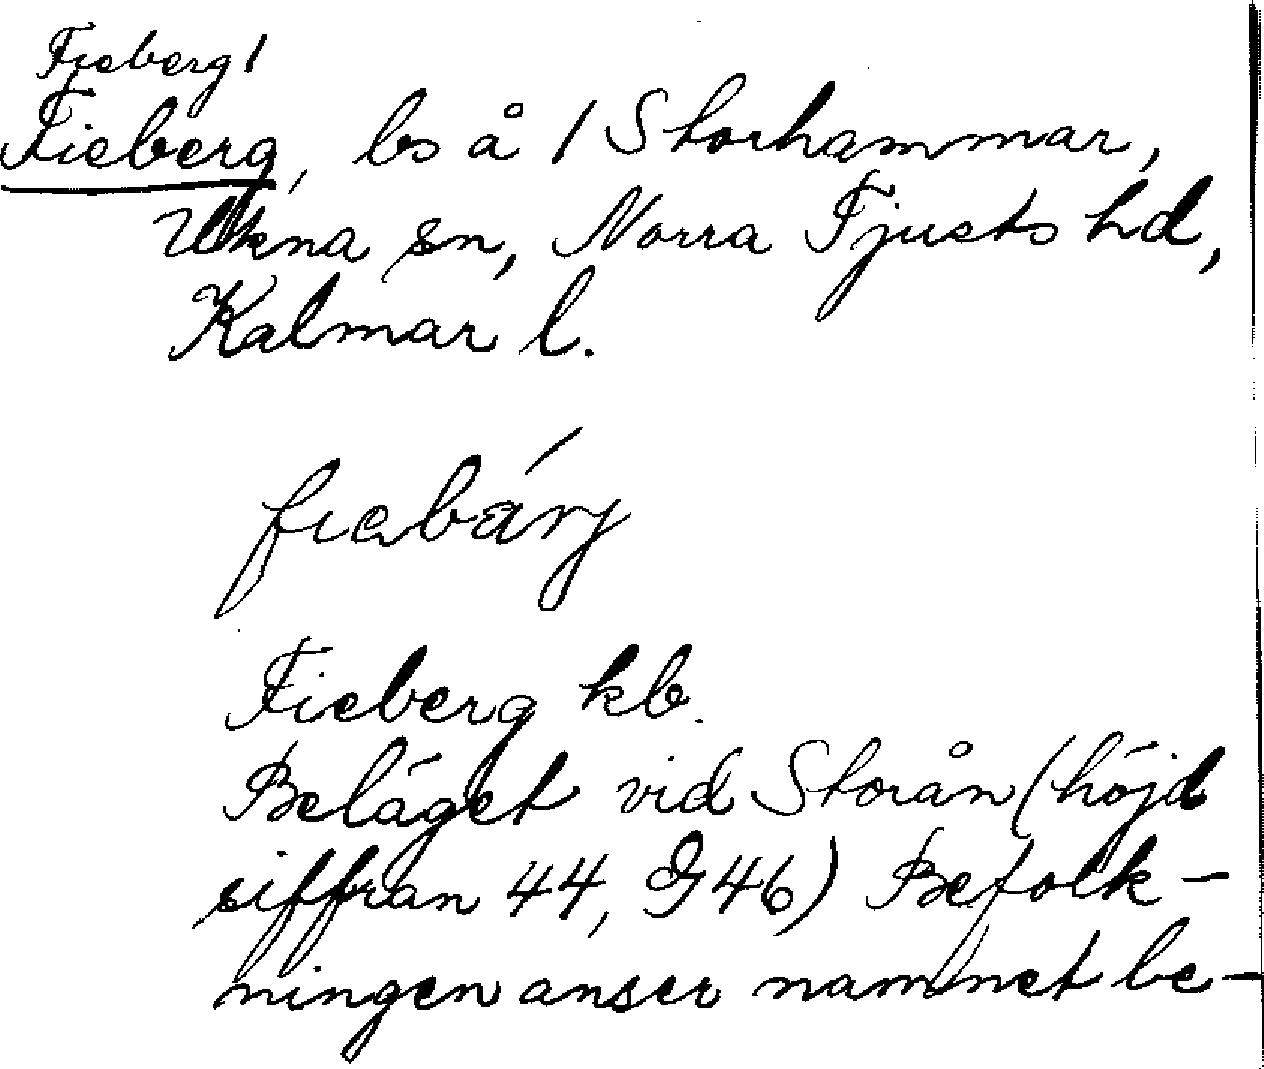 Fieberg 1
Fieberg, ls å 1 Storhammar,
Ukna sn, Norra Tjusts hd,
Kalmar l.
fiebárj
Fieberg kb.
Beläget vid Storån (höjd
siffran 44, G 46) Befolk-
ningen anser namnet be-